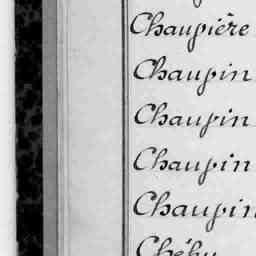 Chaupière
Chaupin
Chaupin
Chaupin
Chaupin